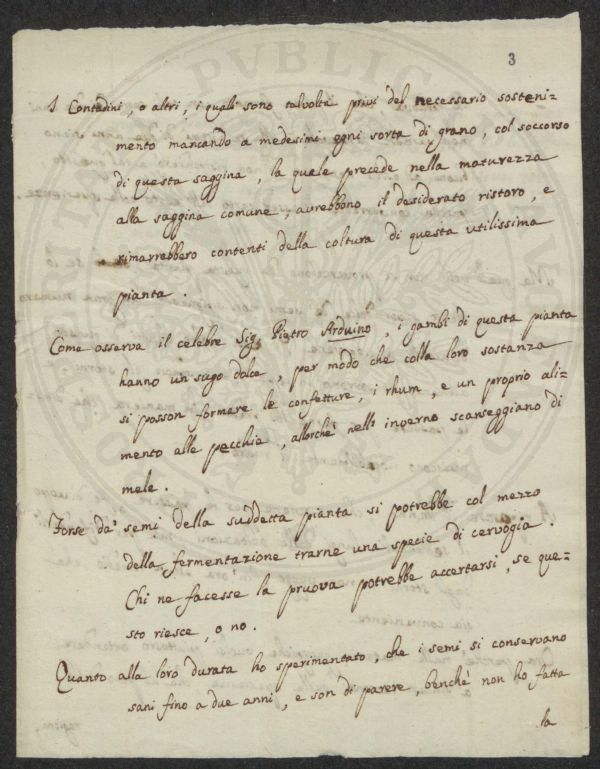 3
I Contadini, o altri, i quali sono talvolta privi del necessario sosteni=
mento mancando a medesimi ogni sorta di grano, col soccorso
di questa saggina, la quale precede nella maturezza
alla saggina comune, avrebbono il desiderato ristoro, e
rimarrebbero contenti della coltura di questa utilissima
pianta.
Come osserva il celebre Sig. Pietro Arduino, i gambi di questa pianta
hanno un sugo dolce, per modo che colla loro sostanza
si posson formare le confetture, i rhum, e un proprio ali=
mento alle pecchie, allorchè nello inverno scarseggiano di
mele.
Forse da' semi della suddetta pianta si potrebbe col mezzo
della fermentazione trarne una specie di cervogia.
Chi ne facesse la pruova potrebbe accertarsi, se que=
sto riesce, o no.
Quanto alla loro durata ho sperimentato, che i semi si conservano
sani fino a due anni, e son di parere, benchè non ho fatta
la